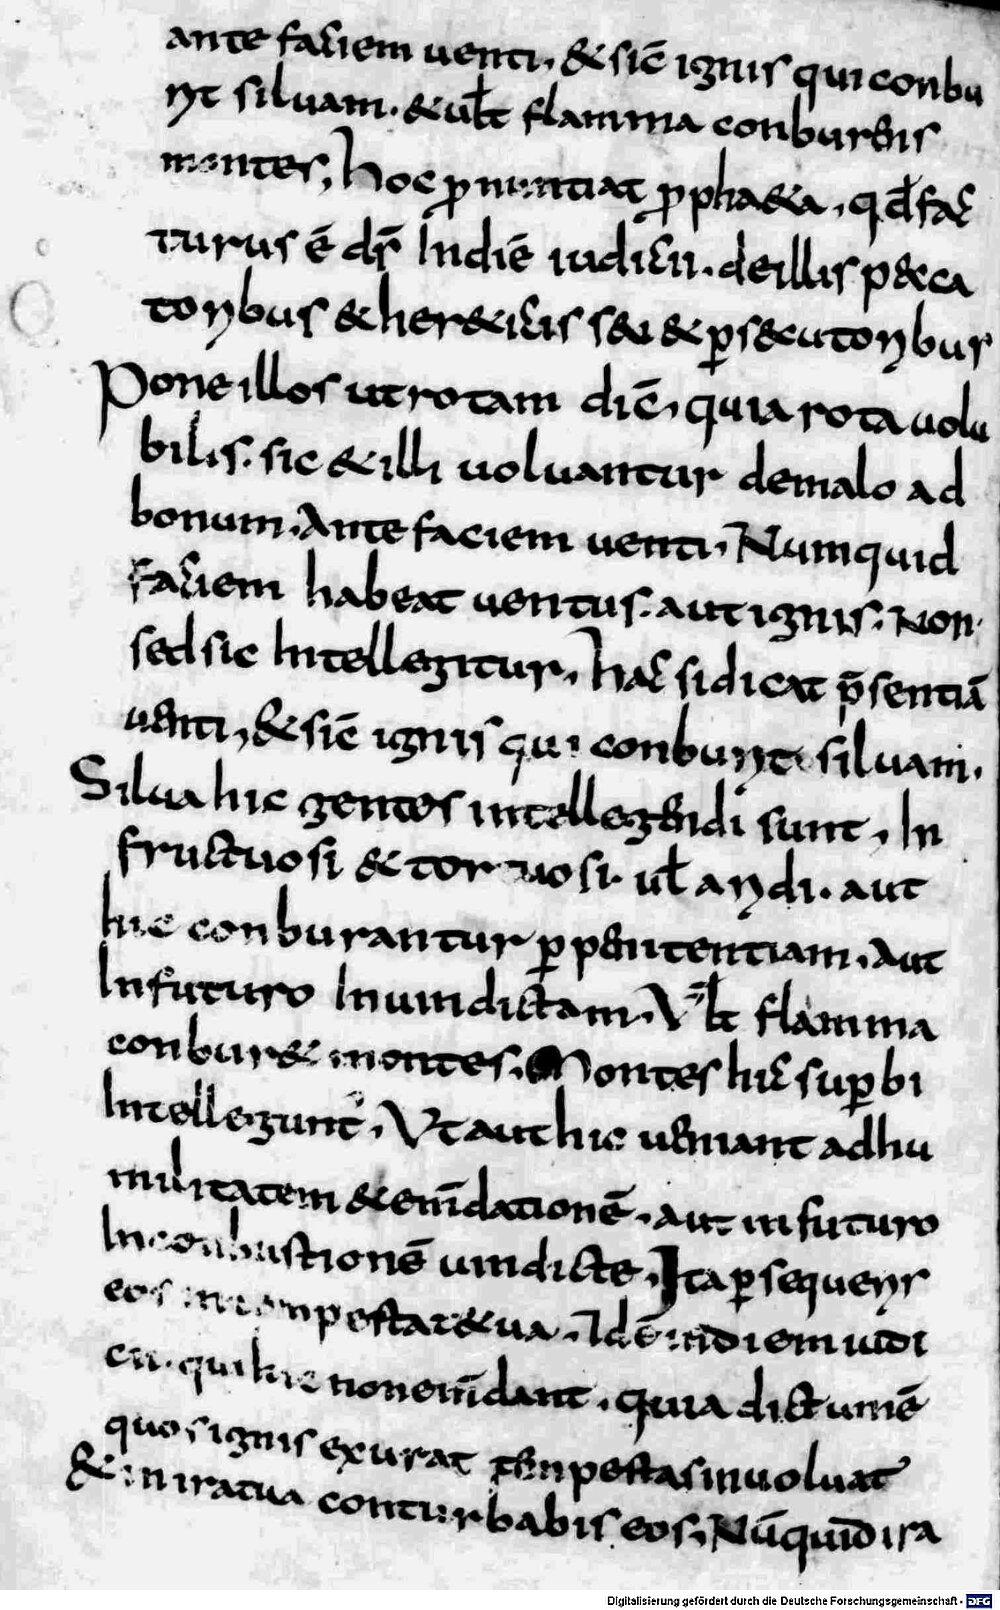 ante faciem uenti, & sic̄ ignis qui conbu
rit siluam. & ul̄t flamma conburens
montes, hoc p̱nuntiat p̱ph&a, qd̄ fac
turus ē dr̄ In diē iudicii. de illis pecca
toribus & her&icis seu & p̱secutoribus
Pone illos ut rotam diē, quia rota uolu
bilis. sic & illi uoluantur de malo ad
bonum. Ante faciem uenti, Numquid
faciem habeat uentus. aut ignis. Non.
sed sic Intellegitur, hac si dicat p̄sentiā
uenti, & sic̄ ignis qui conburit siluam.
Silua hic gentes intellegendi sunt, In
fructuosi & tortuosi. ul̄ aridi. aut
hic conburantur p̱ penitentiam. Aut
In futuro In uindictam. Vl̄t flamma
conbur& montes, Montes hic sup̱bi
Intellegunt᷑. Vt aut hic ueniant ad hu
militatem & em̄dationē. aut in futuro
In conbustionē uindicte. Ita p̱sequeris
eos in tempestate tua. Idē in diem iudi
cii. qui hic non em̄dant. quia dictum ē
quos ignis exurat tenpestas inuoluat
& in ira tua conturbabis eos. Nūquid ira
Digitalisierung gefördert durch die Deutsche Forschungsgemeinschaft - DFG